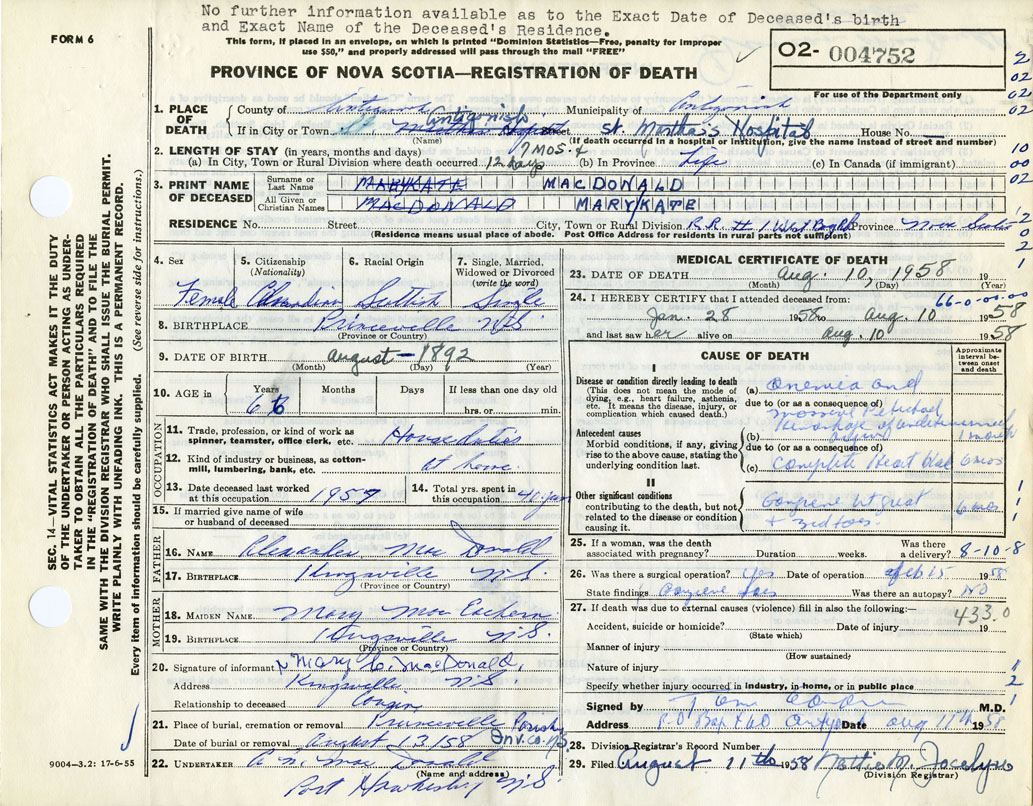 No further information available as to the Exact Date of Deceased's birth
and Exact Name of the Deceased's Residence.
FORM 6
This form, if placed in an envelope, on which is printed "Dominion Statistics—Free, penalty for improper
use $50," and properly addressed will pass through the mail "FREE"
O2- 004752
For use of the Department only
PROVINCE OF NOVA SCOTIA—REGISTRATION OF DEATH
1. PLACE OF DEATH
County of Antigonish Municipality of Antigonish
If in City or Town Antigonish Street St. Martha's Hospital House No.
(Name) (If death occurred in a hospital or institution, give the name instead of street and number)
2. LENGTH OF STAY (in years, months and days) 7 MOS. +
(a) In City, Town or Rural Division where death occurred 12 days (b) In Province Life (c) In Canada (if immigrant)
3. PRINT NAME OF DECEASED
Surname or Last Name MARYKATE MACDONALD
All Given or Christian Names MACDONALD MARY KATE
RESIDENCE No. Street City, Town or Rural Division R.R. # 1 West Province Nova Scotia
(Residence means usual place of abode. Post Office Address for residents in rural parts not sufficient)
4. Sex Female
5. Citizenship (Nationality) Canadian
6. Racial Origin Scottish
7. Single, Married, Widowed or Divorced (write the word) Single
8. BIRTHPLACE Princeville N.S.
(Province or Country)
9. DATE OF BIRTH August - 1892
(Month) (Day) (Year)
10. AGE in Years 66 Months Days If less than one day old
hrs. or min.
OCCUPATION
11. Trade, profession, or kind of work as spinner, teamster, office clerk, etc. House duties
12. Kind of industry or business, as cotton-mill, lumbering, bank, etc. at home
13. Date deceased last worked at this occupation 1957
14. Total yrs. spent in this occupation 40 yrs
15. If married give name of wife or husband of deceased
FATHER
16. NAME Alexander MacDonald
17. BIRTHPLACE Kingsville N.S.
(Province or Country)
MOTHER
18. MAIDEN NAME Mary MacEachern
19. BIRTHPLACE Kingsville N.S.
(Province or Country)
20. Signature of informant Mary C. MacDonald,
Address Kingsville N.S.
Relationship to deceased Cousin
21. Place of burial, cremation or removal Princeville Parish Inv. Co. N.S.
Date of burial or removal August 13/58
22. UNDERTAKER A. N. MacDonald
(Name and address)
Port Hawkesbury N.S.
9004—3.2: 17-6-55
SEC. 14—VITAL STATISTICS ACT MAKES IT THE DUTY
OF THE UNDERTAKER OR PERSON ACTING AS UNDER-
TAKER TO OBTAIN ALL THE PARTICULARS REQUIRED
IN THE "REGISTRATION OF DEATH" AND TO FILE THE
SAME WITH THE DIVISION REGISTRAR WHO SHALL ISSUE THE BURIAL PERMIT.
WRITE PLAINLY WITH UNFADING INK. THIS IS A PERMANENT RECORD.
Every item of information should be carefully supplied. (See reverse side for instructions.)
MEDICAL CERTIFICATE OF DEATH
23. DATE OF DEATH Aug. 10, 1958 19
(Month) (Day) (Year)
24. I HEREBY CERTIFY that I attended deceased from: 66-0-00-00
Jan. 28 1958 to Aug. 10 1958
and last saw her alive on Aug. 10 1958
CAUSE OF DEATH
Approximate interval between onset and death
I
Disease or condition directly leading to death
(This does not mean the mode of
dying, e.g., heart failure, asthenia,
etc. It means the disease, injury, or
complication which caused death.)
(a) Anemia and
due to (or as a consequence of)
massive
Hemorrhage of undetermined
Antecedent causes
Morbid conditions, if any, giving
rise to the above cause, stating the
underlying condition last.
(b) origin 1 month
due to (or as a consequence of)
(c) Complete Heart 6 mos
II
Other significant conditions
contributing to the death, but not
related to the disease or condition
causing it.
Gangrene lt great
+ 3rd toes. 6 mos
25. If a woman, was the death associated with pregnancy? Duration weeks. Was there a delivery? 8-10-8
26. Was there a surgical operation? yes Date of operation Feb 15 1958
State findings Gangrene toes Was there an autopsy? NO
27. If death was due to external causes (violence) fill in also the following:— 433.0
Accident, suicide or homicide? Date of injury 19
(State which)
Manner of injury
(How sustained)
Nature of injury
Specify whether injury occurred in industry, in home, or in public place
Signed by M.D.
Address P.O. Box Date Aug 11th 1958
28. Division Registrar's Record Number
29. Filed August 11th 1958 Nattie M. Jocelyn
(Division Registrar)
2
02
02
02
10
00
02
2
0
2
1
1
1
1
1
2
1